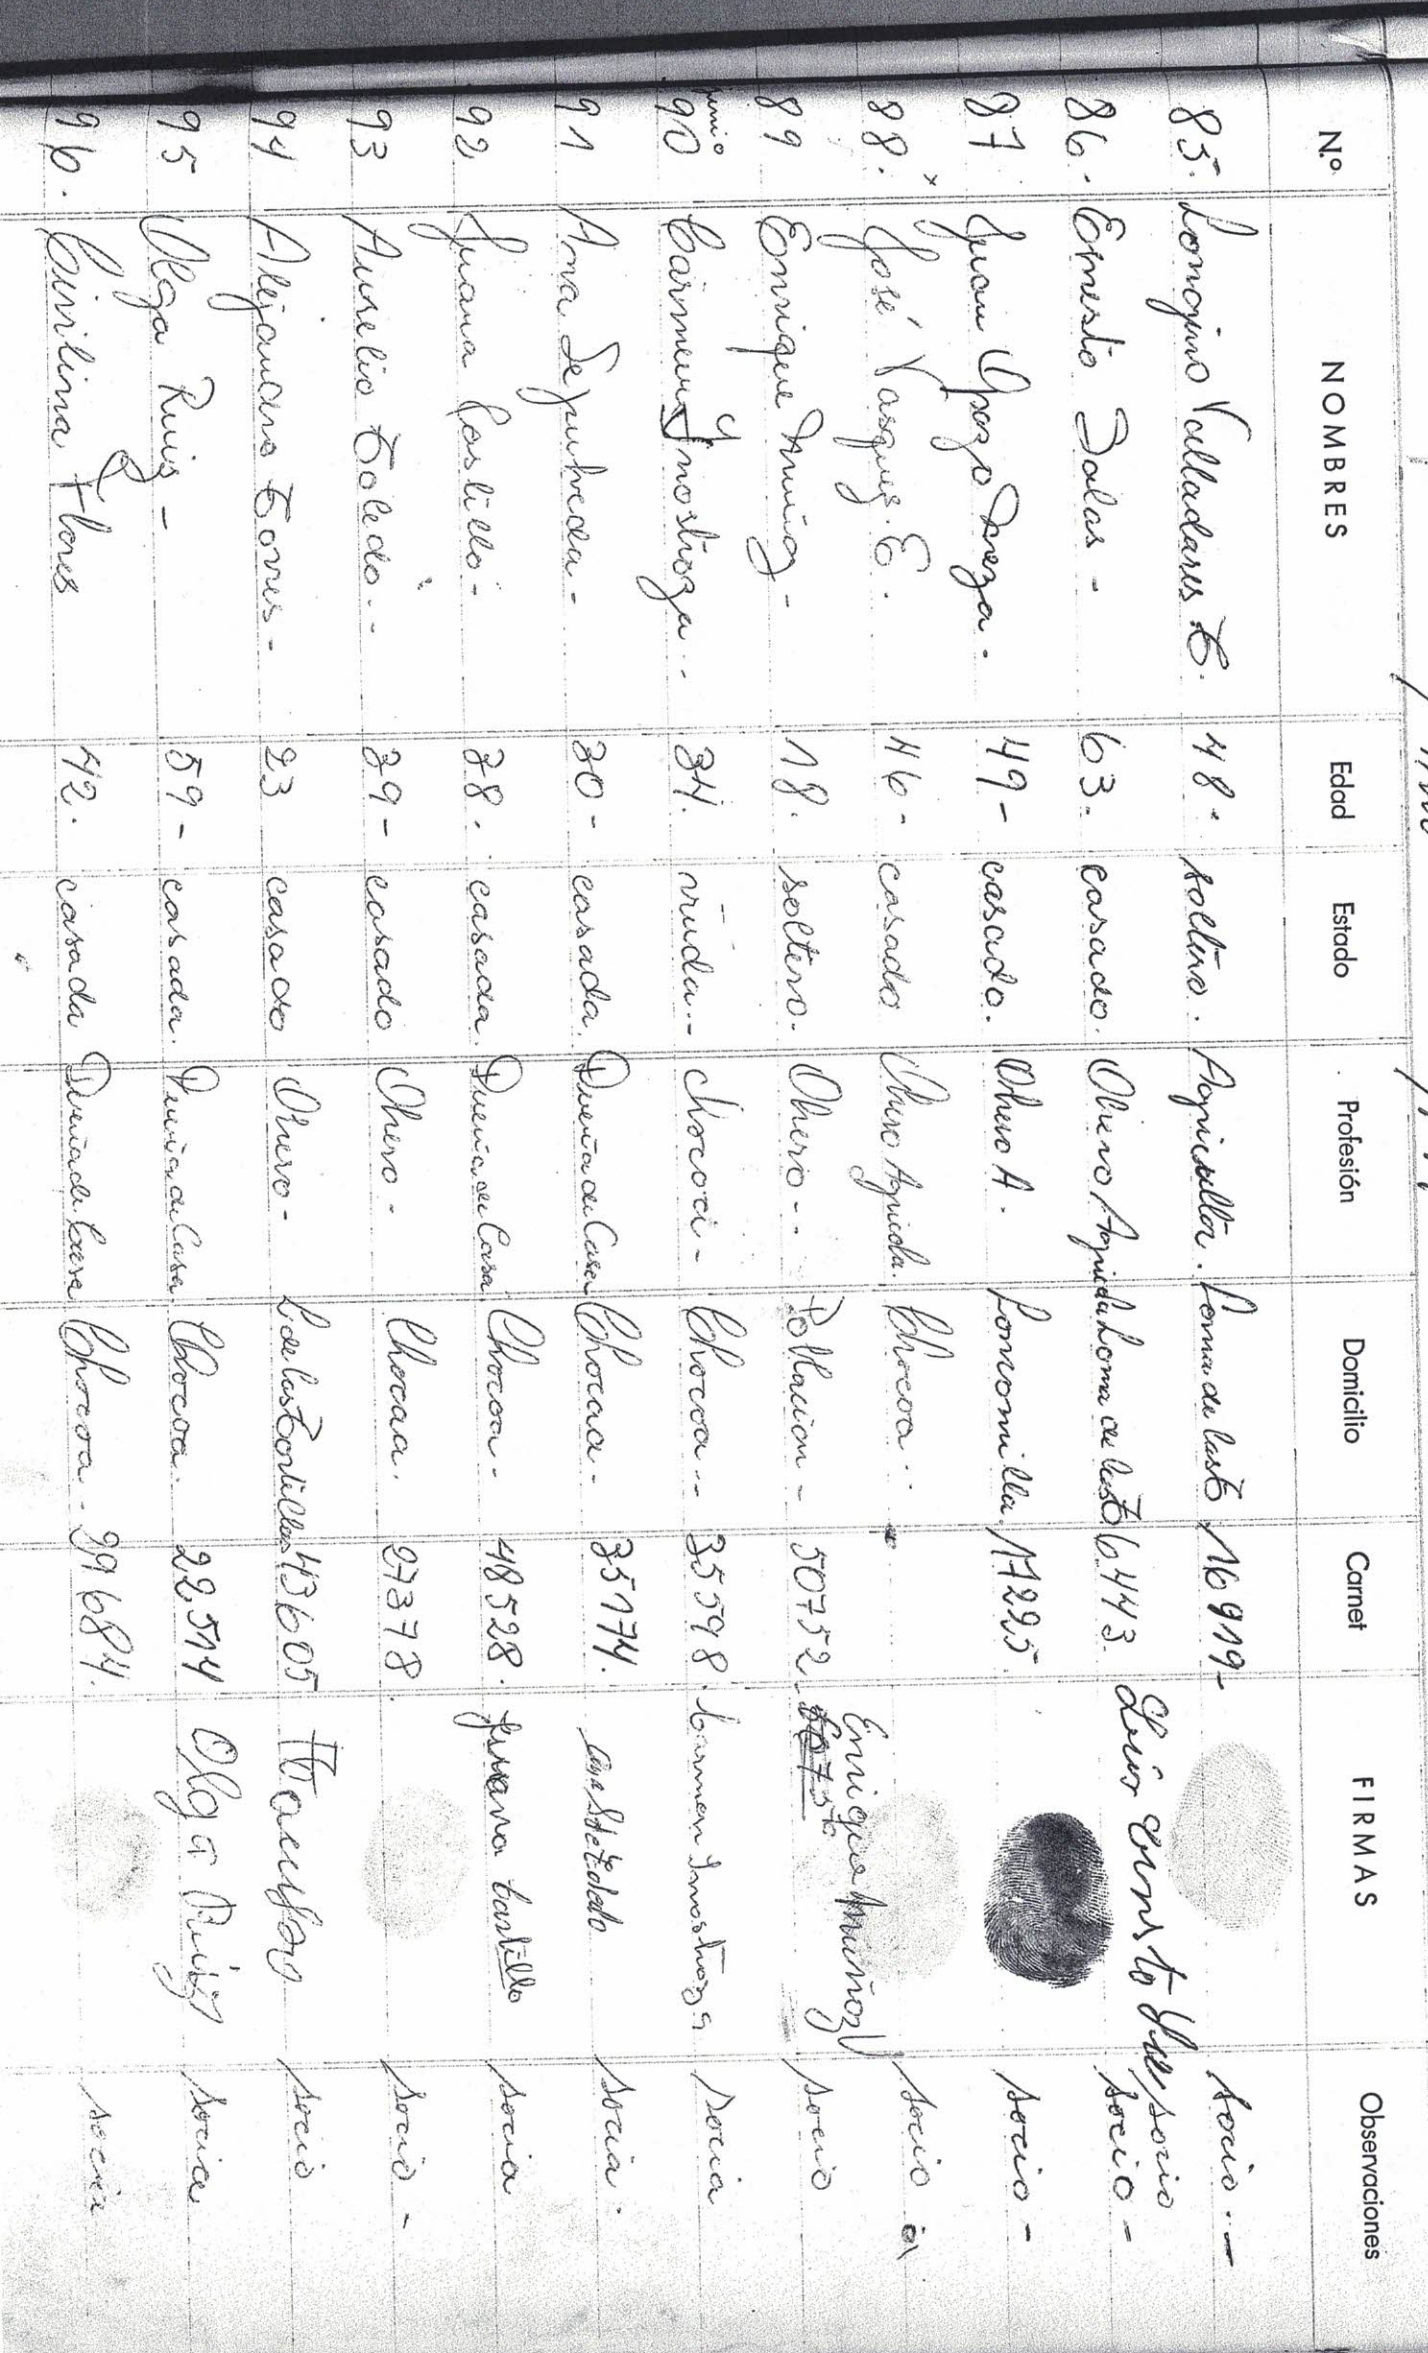 N.º NOMBRES Edad Estado Profesión Domicilio Carnet FIRMAS Observaciones
85. Longino Valladares T. 48. soltero. Agricultor. Loma de las T 16919- socio.-
86. Ernesto Salas - 63. casado. Obrero Agricola Loma de las T 6443. Luis Ernesto socio socio -
87 Juan Opazo Meza. 49- casado. Obrero A. Loncomilla. 17225 socio -
88. José Vasquez. E. 46- casado Obrero Agricola. Chocoa.. socio
89 Enrique Muñoz - 18. soltero. Obrero-. Poblacion - 50752 Enrique Muñoz V socio
90 Carmen Inostroza.. 34. viuda.- Chocoa.- 35598. Carmen Inostroza socia
91 Ana Sepulveda- 30- casada. Dueña de Casa Chocoa- 35174. socia.
92 Juana Castillo- 38. casada. Dueña de Casa Chocoa- 48528. Juana Castillo socia
93 Aurelio Toledo.- 39- casado Obrero- Chocoa. 27378. socio -
94 Alejandro Torres- 23 casado Obrero- L de las Tortillas 43605 socio
95 Olga Ruiz - 59- casada. Dueña de Casa Chocoa. 22.514 Olga Ruiz socia
96. Cirilina Flores 42. casada Dueña de Casa Chocoa- 29684. socia